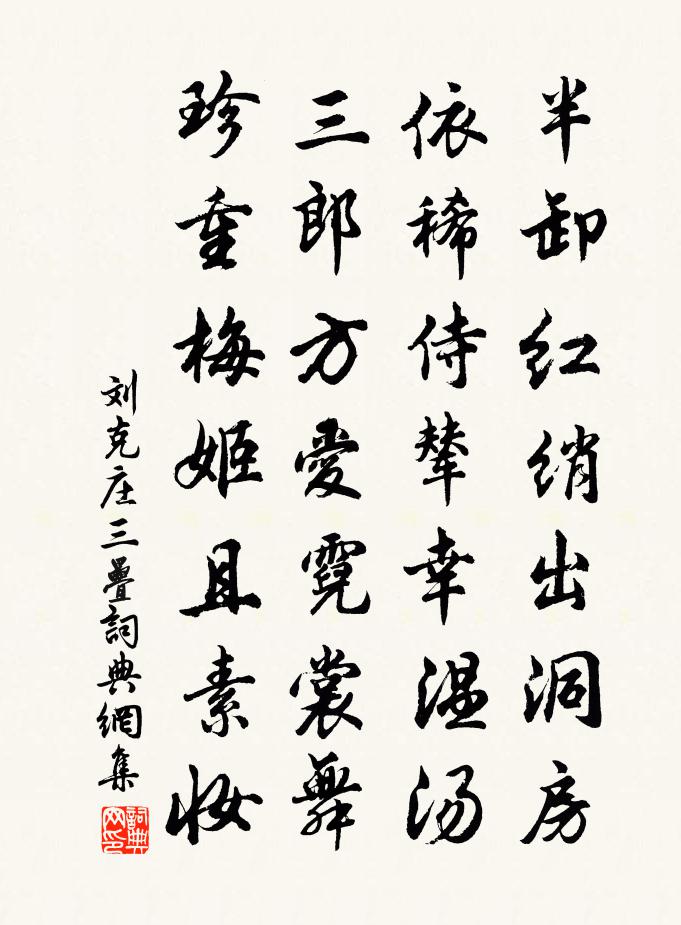 半卸红绡出洞房
依稀侍辇幸温汤
三郎方爱霓裳舞
珍重梅姬且素妆
刘克庄三疊詞典網集
詞典
网印